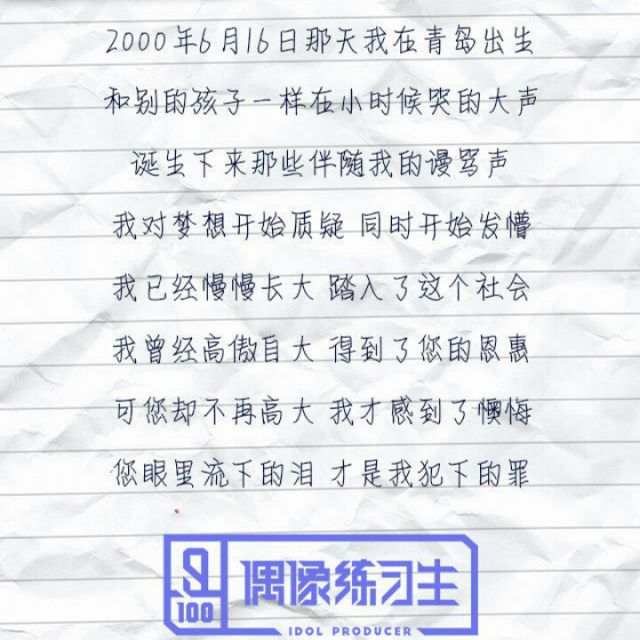 2000年6月16日那天我在青岛出生
和别的孩子一样在小时候哭的大声
诞生下来那些伴随我的谩骂声
我对梦想开始质疑 同时开始发懵
我已经慢慢长大 踏入了这个社会
我曾经高傲自大 得到了您的恩惠
可您却不再高大 我才感到了懊悔
您眼里流下的泪 才是我犯下的罪
100 偶像练习生
IDOL PRODUCER